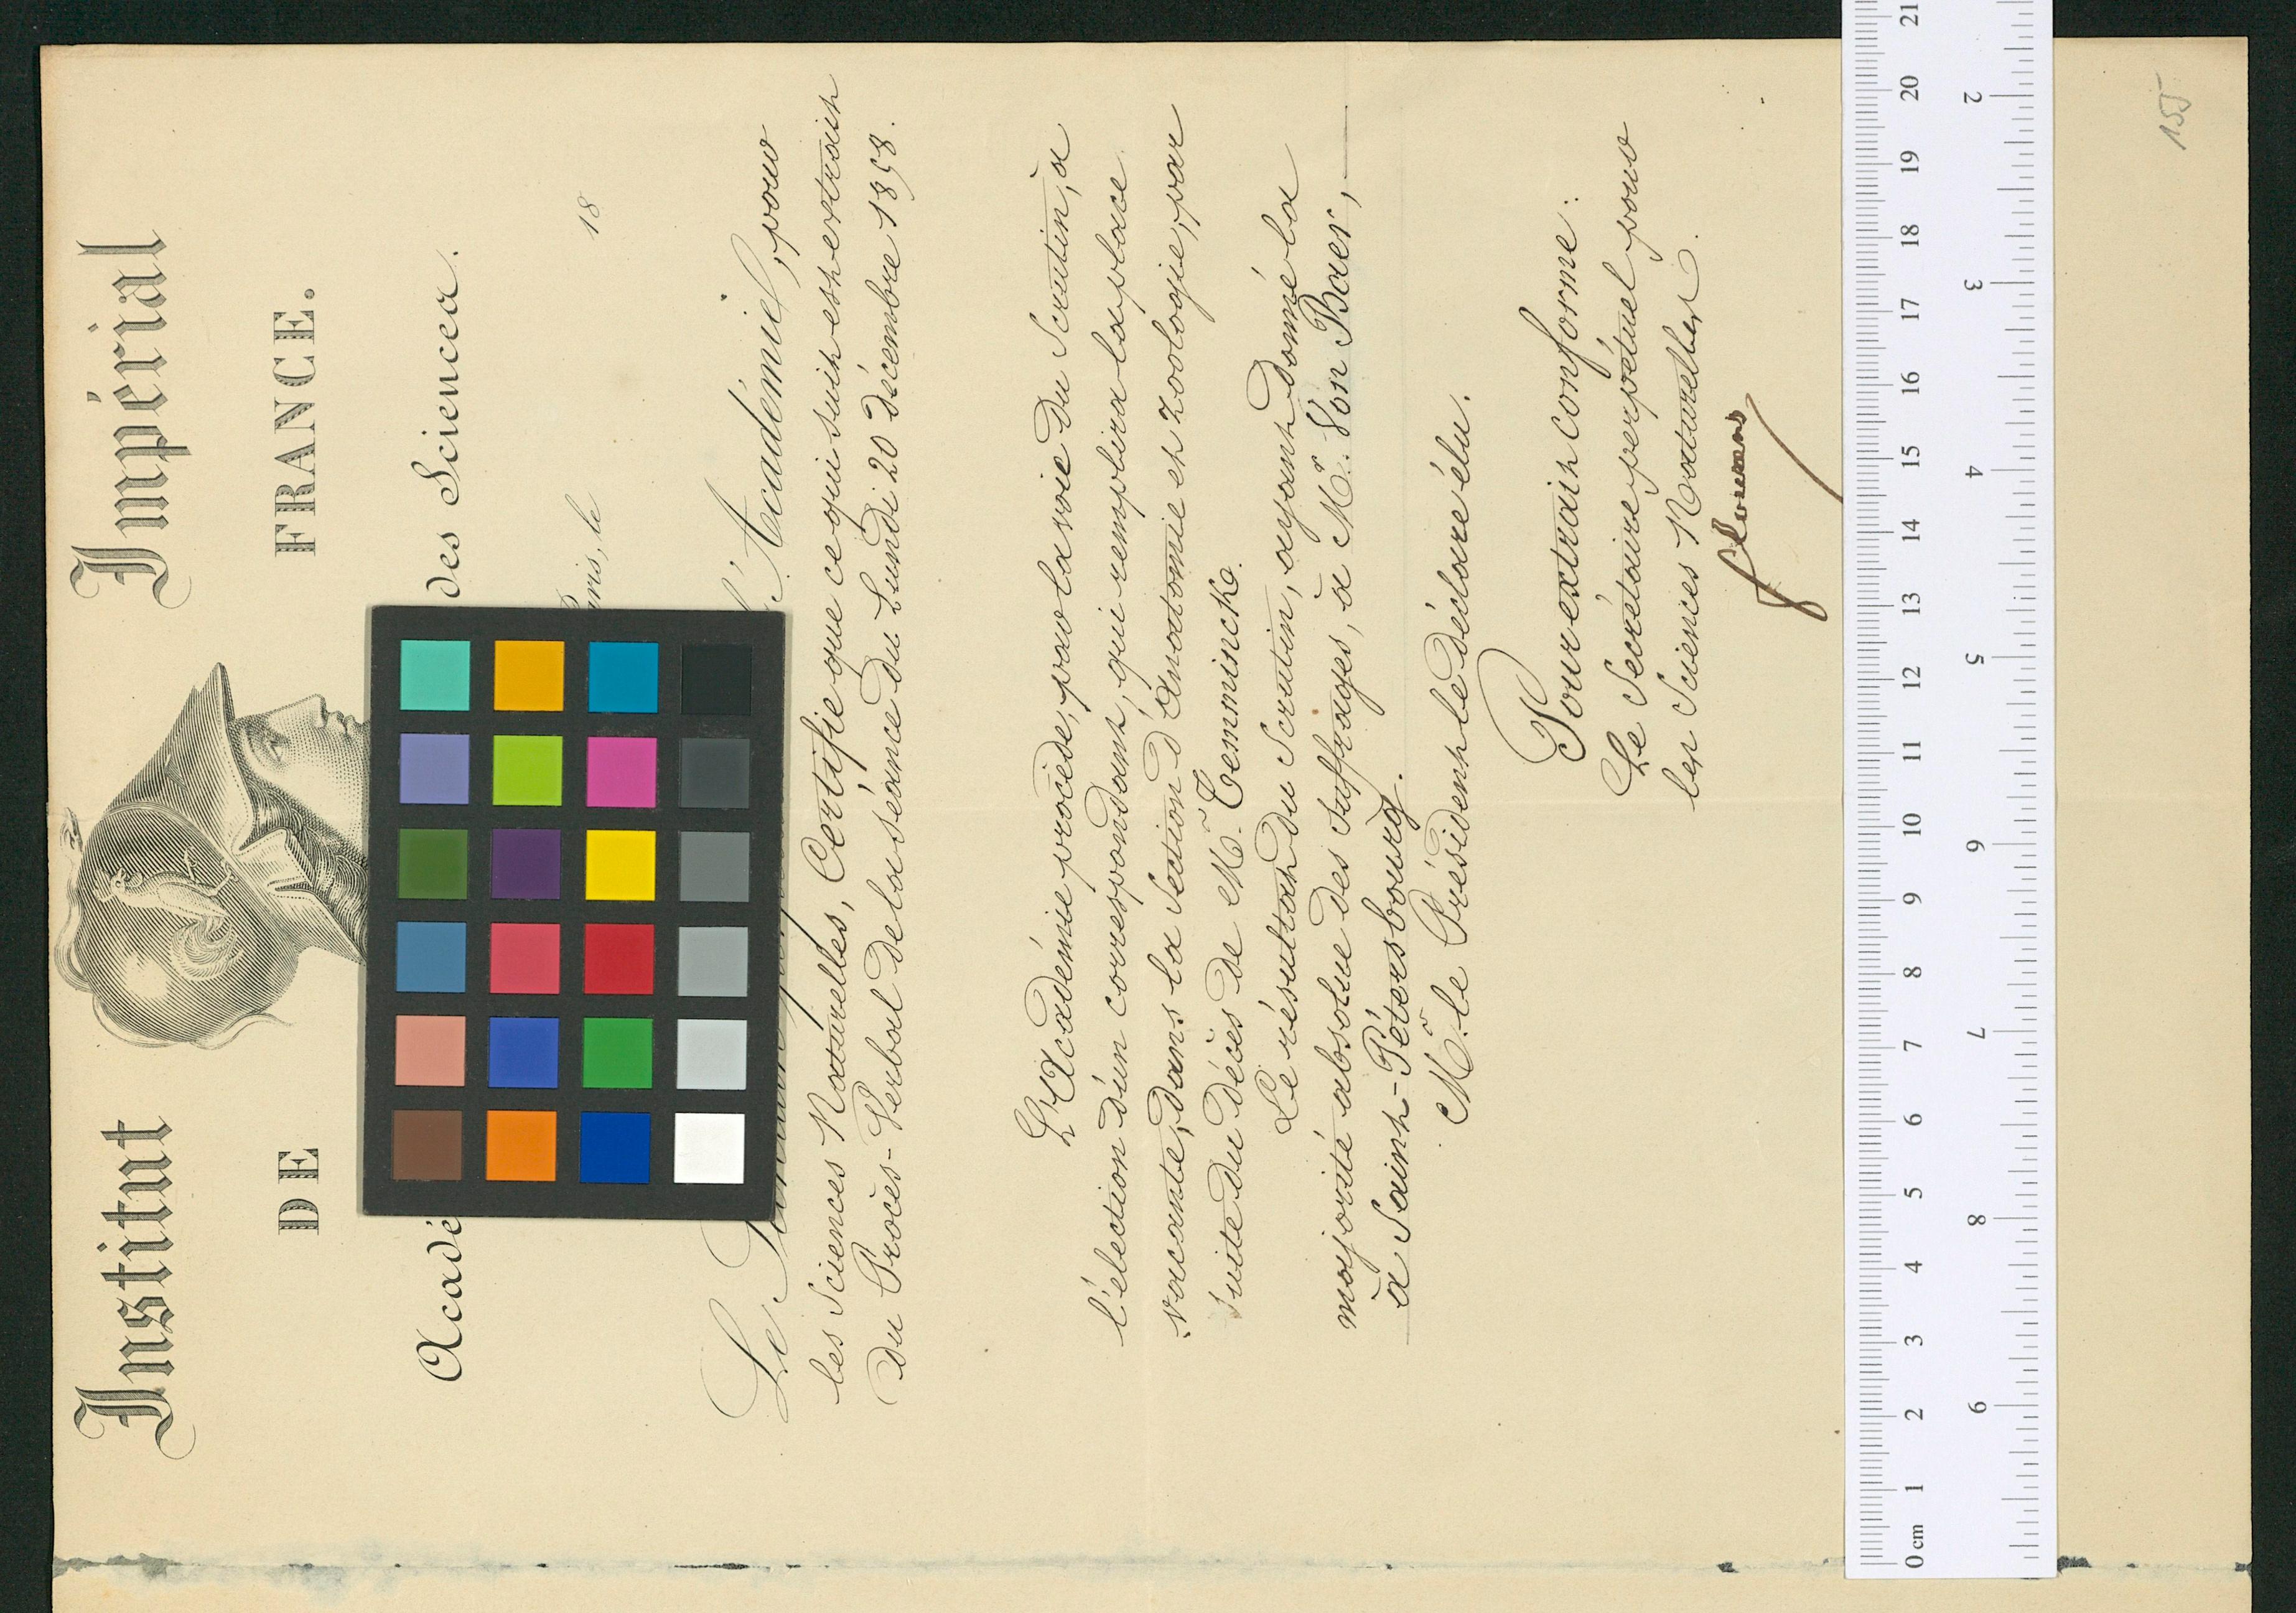 Institut Impérial
DE FRANCE.
Acadé des Sciences.
Paris, le 18
Le l'Académie, pour
les Sciences Naturelles, Certifie que ce qui suit est extrait
du Procès-Verbal de la séance du Lundi 20 décembre 1858.
L'Académie procède, par la voie du Scrutin, à
l'élection d'un correspondant, qui remplira la place
vacante, dans la Section d'Anatomie et Zoologie, par
suite du décès de Mr. Temminck.
Le résultat du Scrutin, ayant donné la
majorité absolue des suffrages, à Mr. Von Baer,
à Saint-Pétersbourg.
Mr. le Président le déclare élu.
Pour extrait conforme:
Le Secrétaire perpétuel pour
les Sciences Naturelles.
Flourens
155
0 cm 1 2 3 4 5 6 7 8 9 10 11 12 13 14 15 16 17 18 19 20 21
2 3 4 5 6 7 8 9